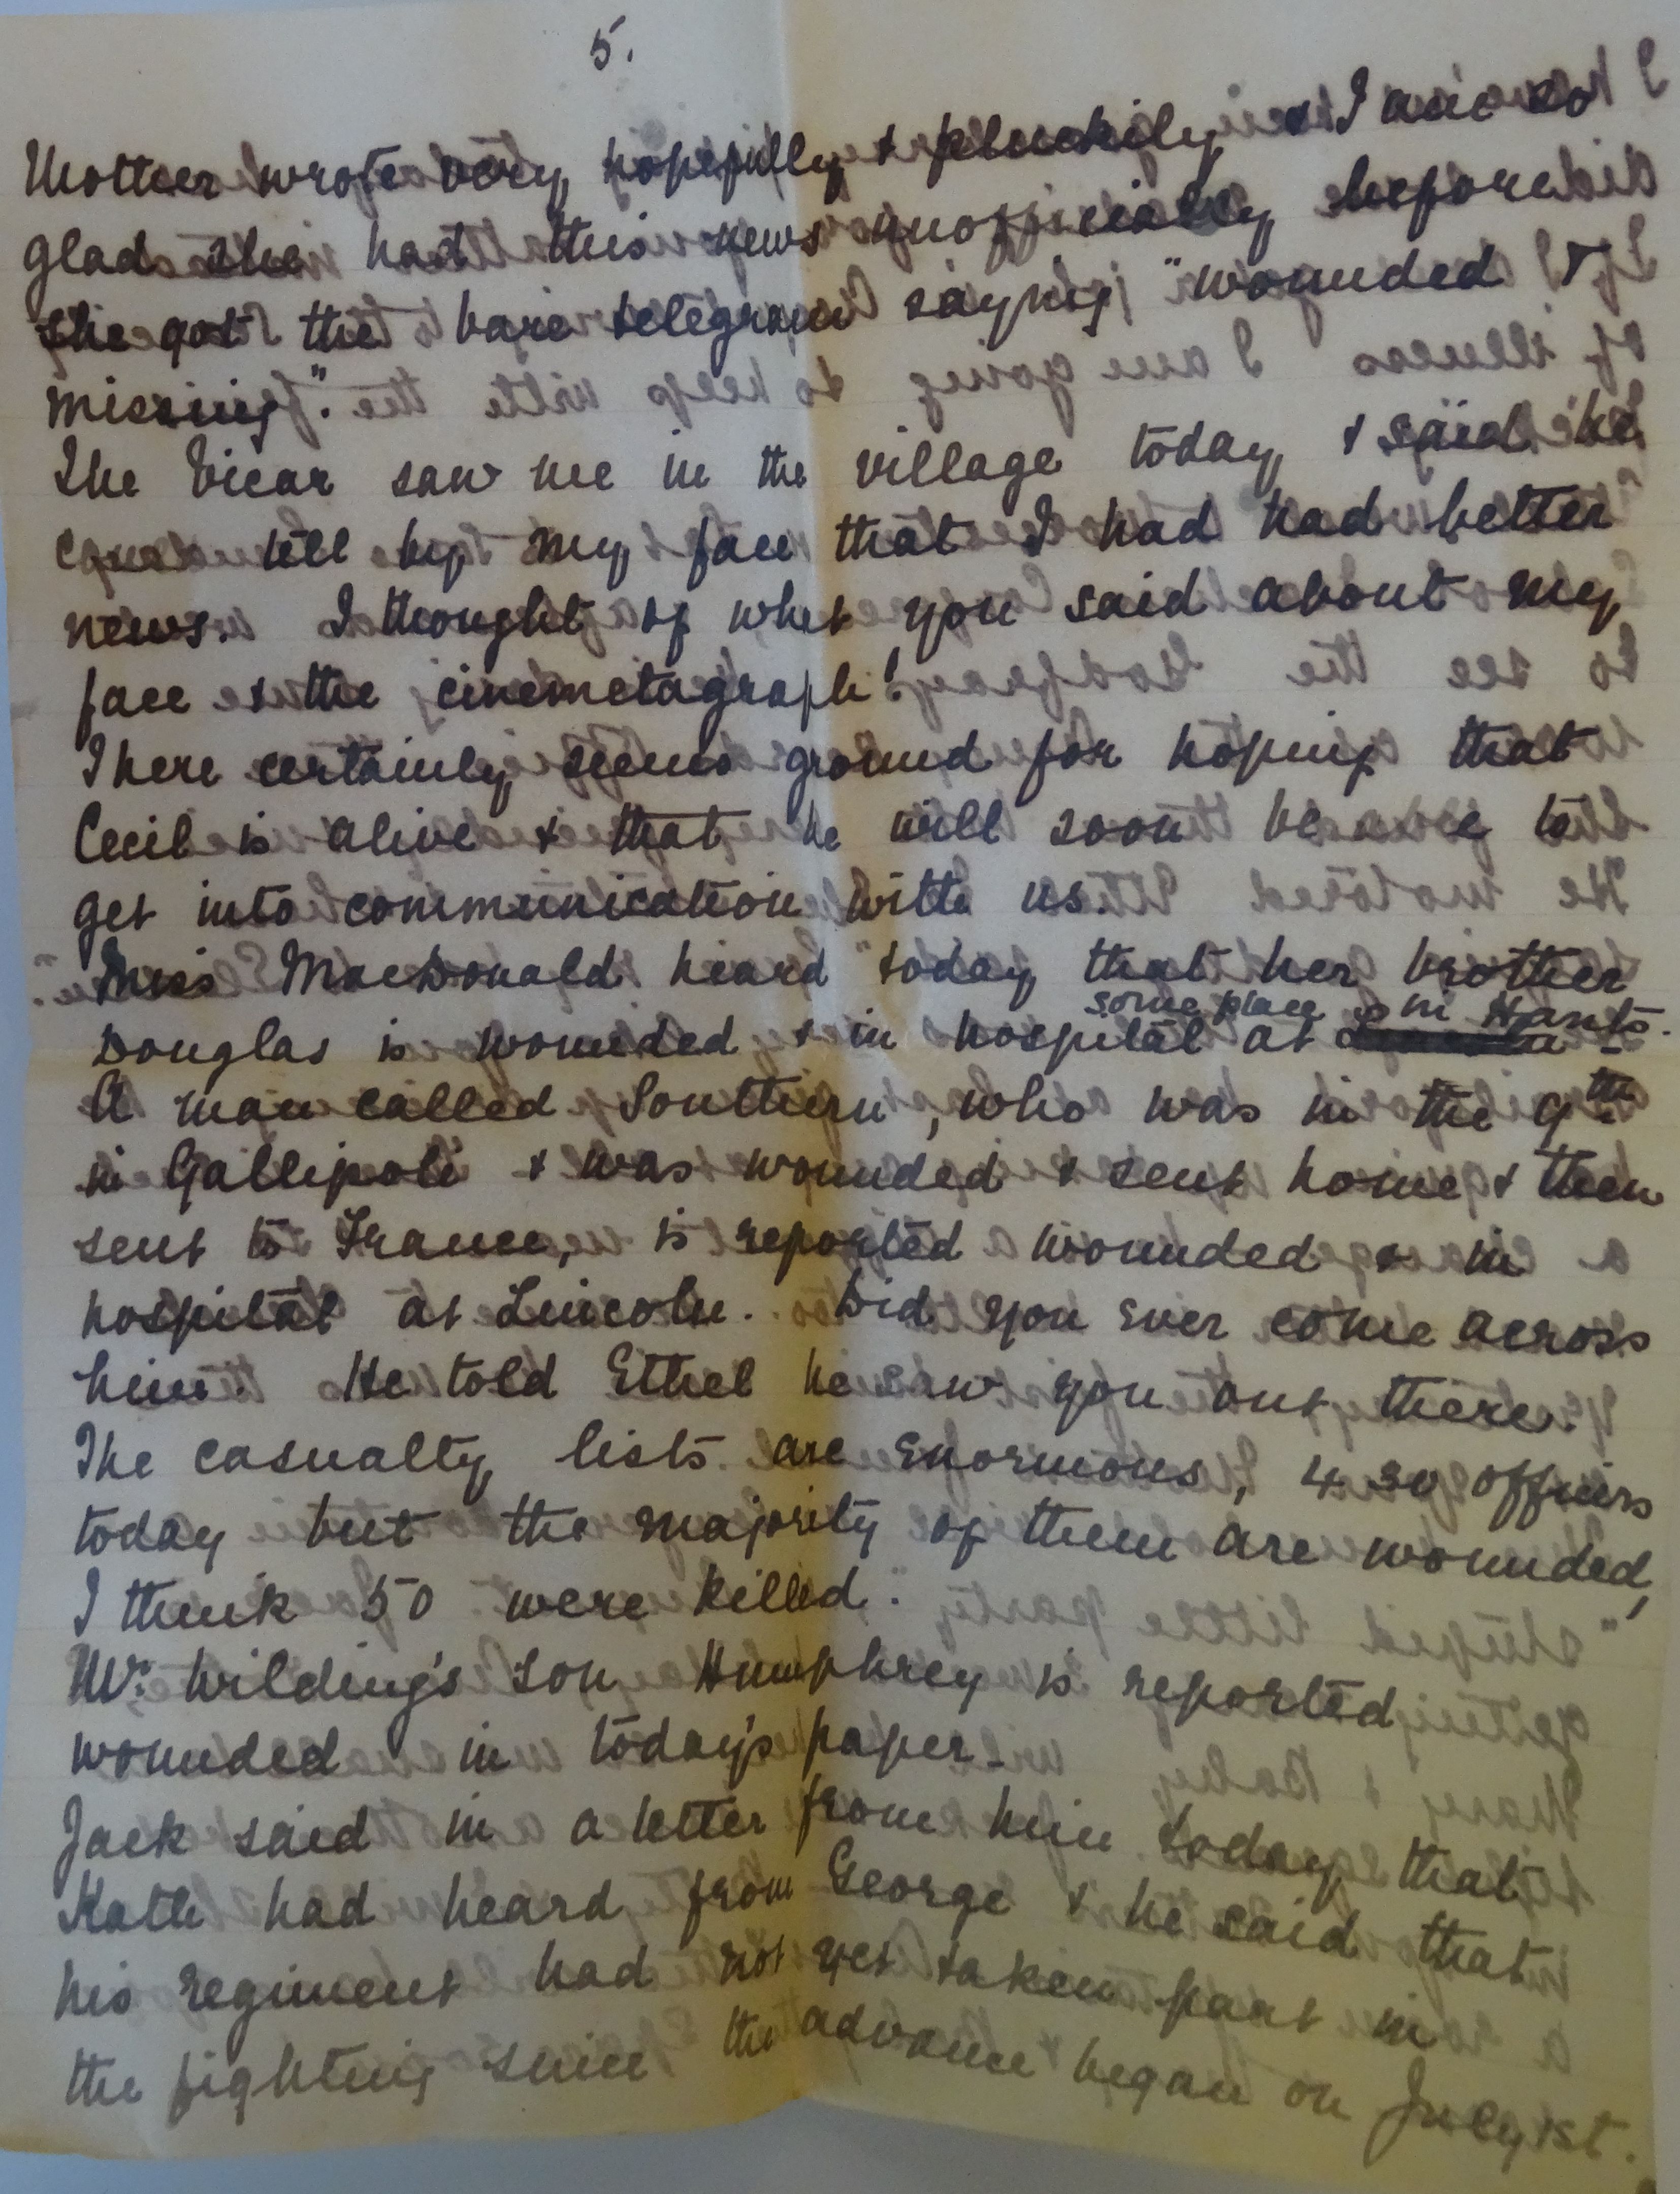 5.
Mother wrote very hopefully & pluckily & I am so
glad she had this news unofficially before
she got the bare telegram saying "wounded &
missing".
The Vicar saw me in the village today & said he
could tell by my face that I had had better
news. I thought of what you said about my
face & the cinemetagraph!
There certainly seems ground for hoping that
Cecil is alive & that he will soon be able to
get into communication with us.
Miss MacDonald heard today that her brother
some place in Hants.
Douglas is wounded & in hospital at
A man called Southern, who was in the 9th
in Gallipoli & was wounded & sent home & then
sent to France, is reported wounded & in
hospital at Lincoln. Did you ever come across
him. He told Ethel he saw you out there.
The casualty lists are enormous, 430 officers
today but the majority of them are wounded,
I think 50 were killed.
Mr. Wilding's son Humphrey is reported
wounded in today's paper.
Jack said in a letter from him today that
Kath had heard from George & he said that
his regiment had not yet taken part in
the fighting since the advance began on July 1st.